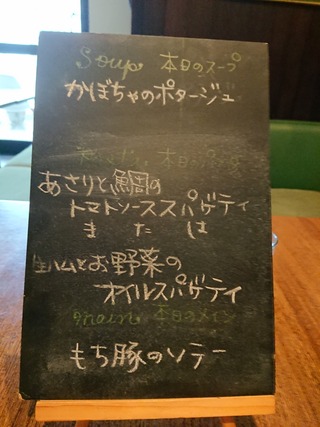 Soup 本日のスープ
かぼちゃのポタージュ
本日のパスタ
あさりと鯛の
トマトソーススパゲティ
または
生ハムとお野菜の
オイルスパゲティ
main 本日のメイン
もち豚のソテー